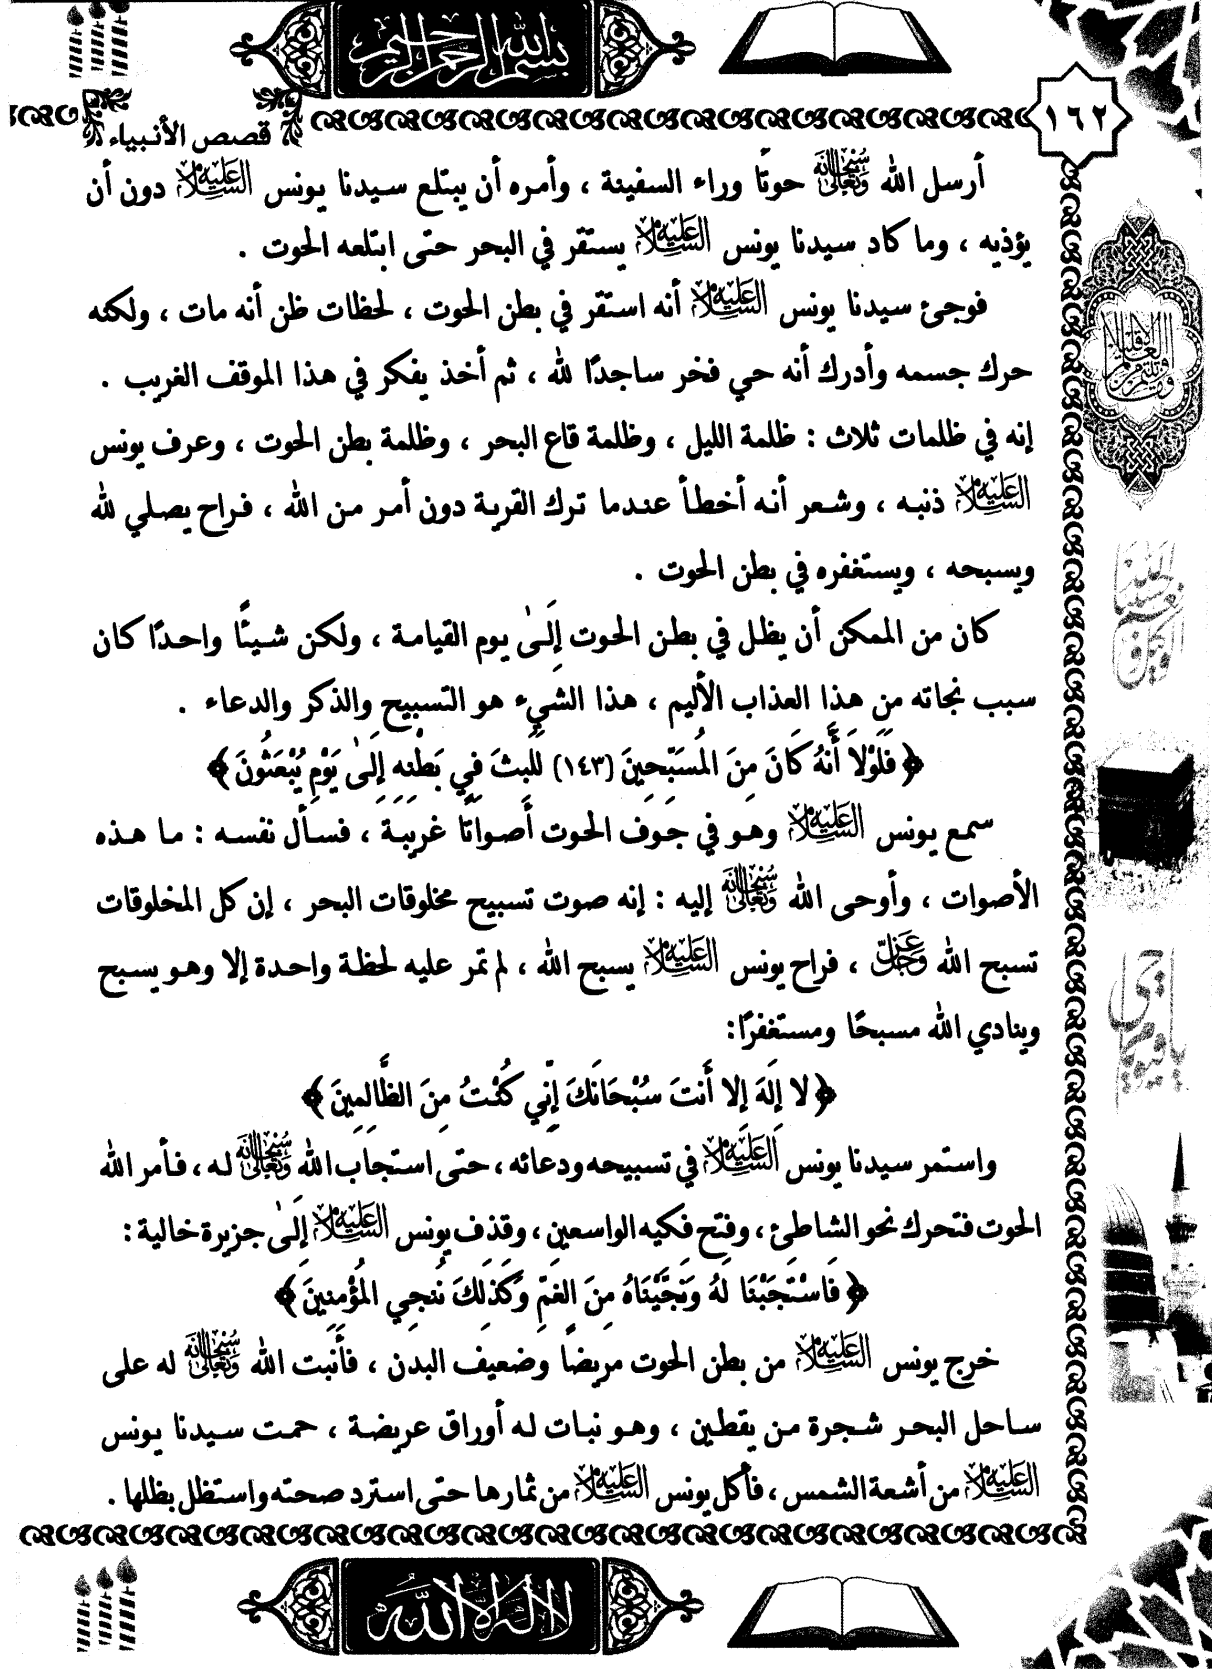 بسم الله الرحمن الرحيم
١٦٢
قصص الأنبياء
أرسل الله سبحانه وتعالى حوتًا وراء السفينة ، وأمره أن يبتلع سيدنا يونس عليه السلام دون أن
يؤذيه ، وما كاد سيدنا يونس عليه السلام يستقر في البحر حتى ابتلعه الحوت .
فوجئ سيدنا يونس عليه السلام أنه استقر في بطن الحوت ، لحظات ظن أنه مات ، ولكنه
حرك جسمه وأدرك أنه حي فخر ساجدًا لله ، ثم أخذ يفكر في هذا الموقف الغريب .
إنه في ظلمات ثلاث : ظلمة الليل ، وظلمة قاع البحر ، وظلمة بطن الحوت ، وعرف يونس
عليه السلام ذنبه ، وشعر أنه أخطأ عندما ترك القرية دون أمر من الله ، فراح يصلي لله
ويسبحه ، ويستغفره في بطن الحوت .
كان من الممكن أن يظل في بطن الحوت إِلَىٰ يوم القيامة ، ولكن شيئًا واحدًا كان
سبب نجاته من هذا العذاب الأليم ، هذا الشيء هو التسبيح والذكر والدعاء .
﴿ فَلَوْلاَ أَنَّهُ كَانَ مِنَ الْمُسَبِّحِينَ (١٤٣) لَلَبِثَ فِي بَطْنِهِ إِلَىٰ يَوْمِ يُبْعَثُونَ ﴾
سمع يونس عليه السلام وهو في جوف الحوت أصواتًا غريبة ، فسأل نفسه : ما هذه
الأصوات ، وأوحى الله سبحانه وتعالى إليه : إنه صوت تسبيح مخلوقات البحر ، إن كل المخلوقات
تسبح الله عز وجل ، فراح يونس عليه السلام يسبح الله ، لم تمر عليه لحظة واحدة إلا وهو يسبح
وينادي الله مسبحًا ومستغفرًا:
﴿ لا إِلَهَ إِلا أَنتَ سُبْحَانَكَ إِنِّي كُنْتُ مِنَ الظَّالِمِينَ ﴾
واستمر سيدنا يونس عليه السلام في تسبيحه ودعائه ، حتى استجاب الله سبحانه وتعالى له ، فأمر الله
الحوت فتحرك نحو الشاطئ ، وفتح فكيه الواسعين ، وقذف يونس عليه السلام إِلَىٰ جزيرة خالية :
﴿ فَاسْتَجَبْنَا لَهُ وَنَجَّيْنَاهُ مِنَ الْغَمِّ وَكَذَلِكَ نُنجِي الْمُؤْمِنِينَ ﴾
خرج يونس عليه السلام من بطن الحوت مريضًا وضعيف البدن ، فأنبت الله سبحانه وتعالى له على
ساحل البحر شجرة من يقطين ، وهو نبات له أوراق عريضة ، حمت سيدنا يونس
عليه السلام من أشعة الشمس ، فأكل يونس عليه السلام من ثمارها حتى استرد صحته واستظل بظلها .
لا إله إلا الله